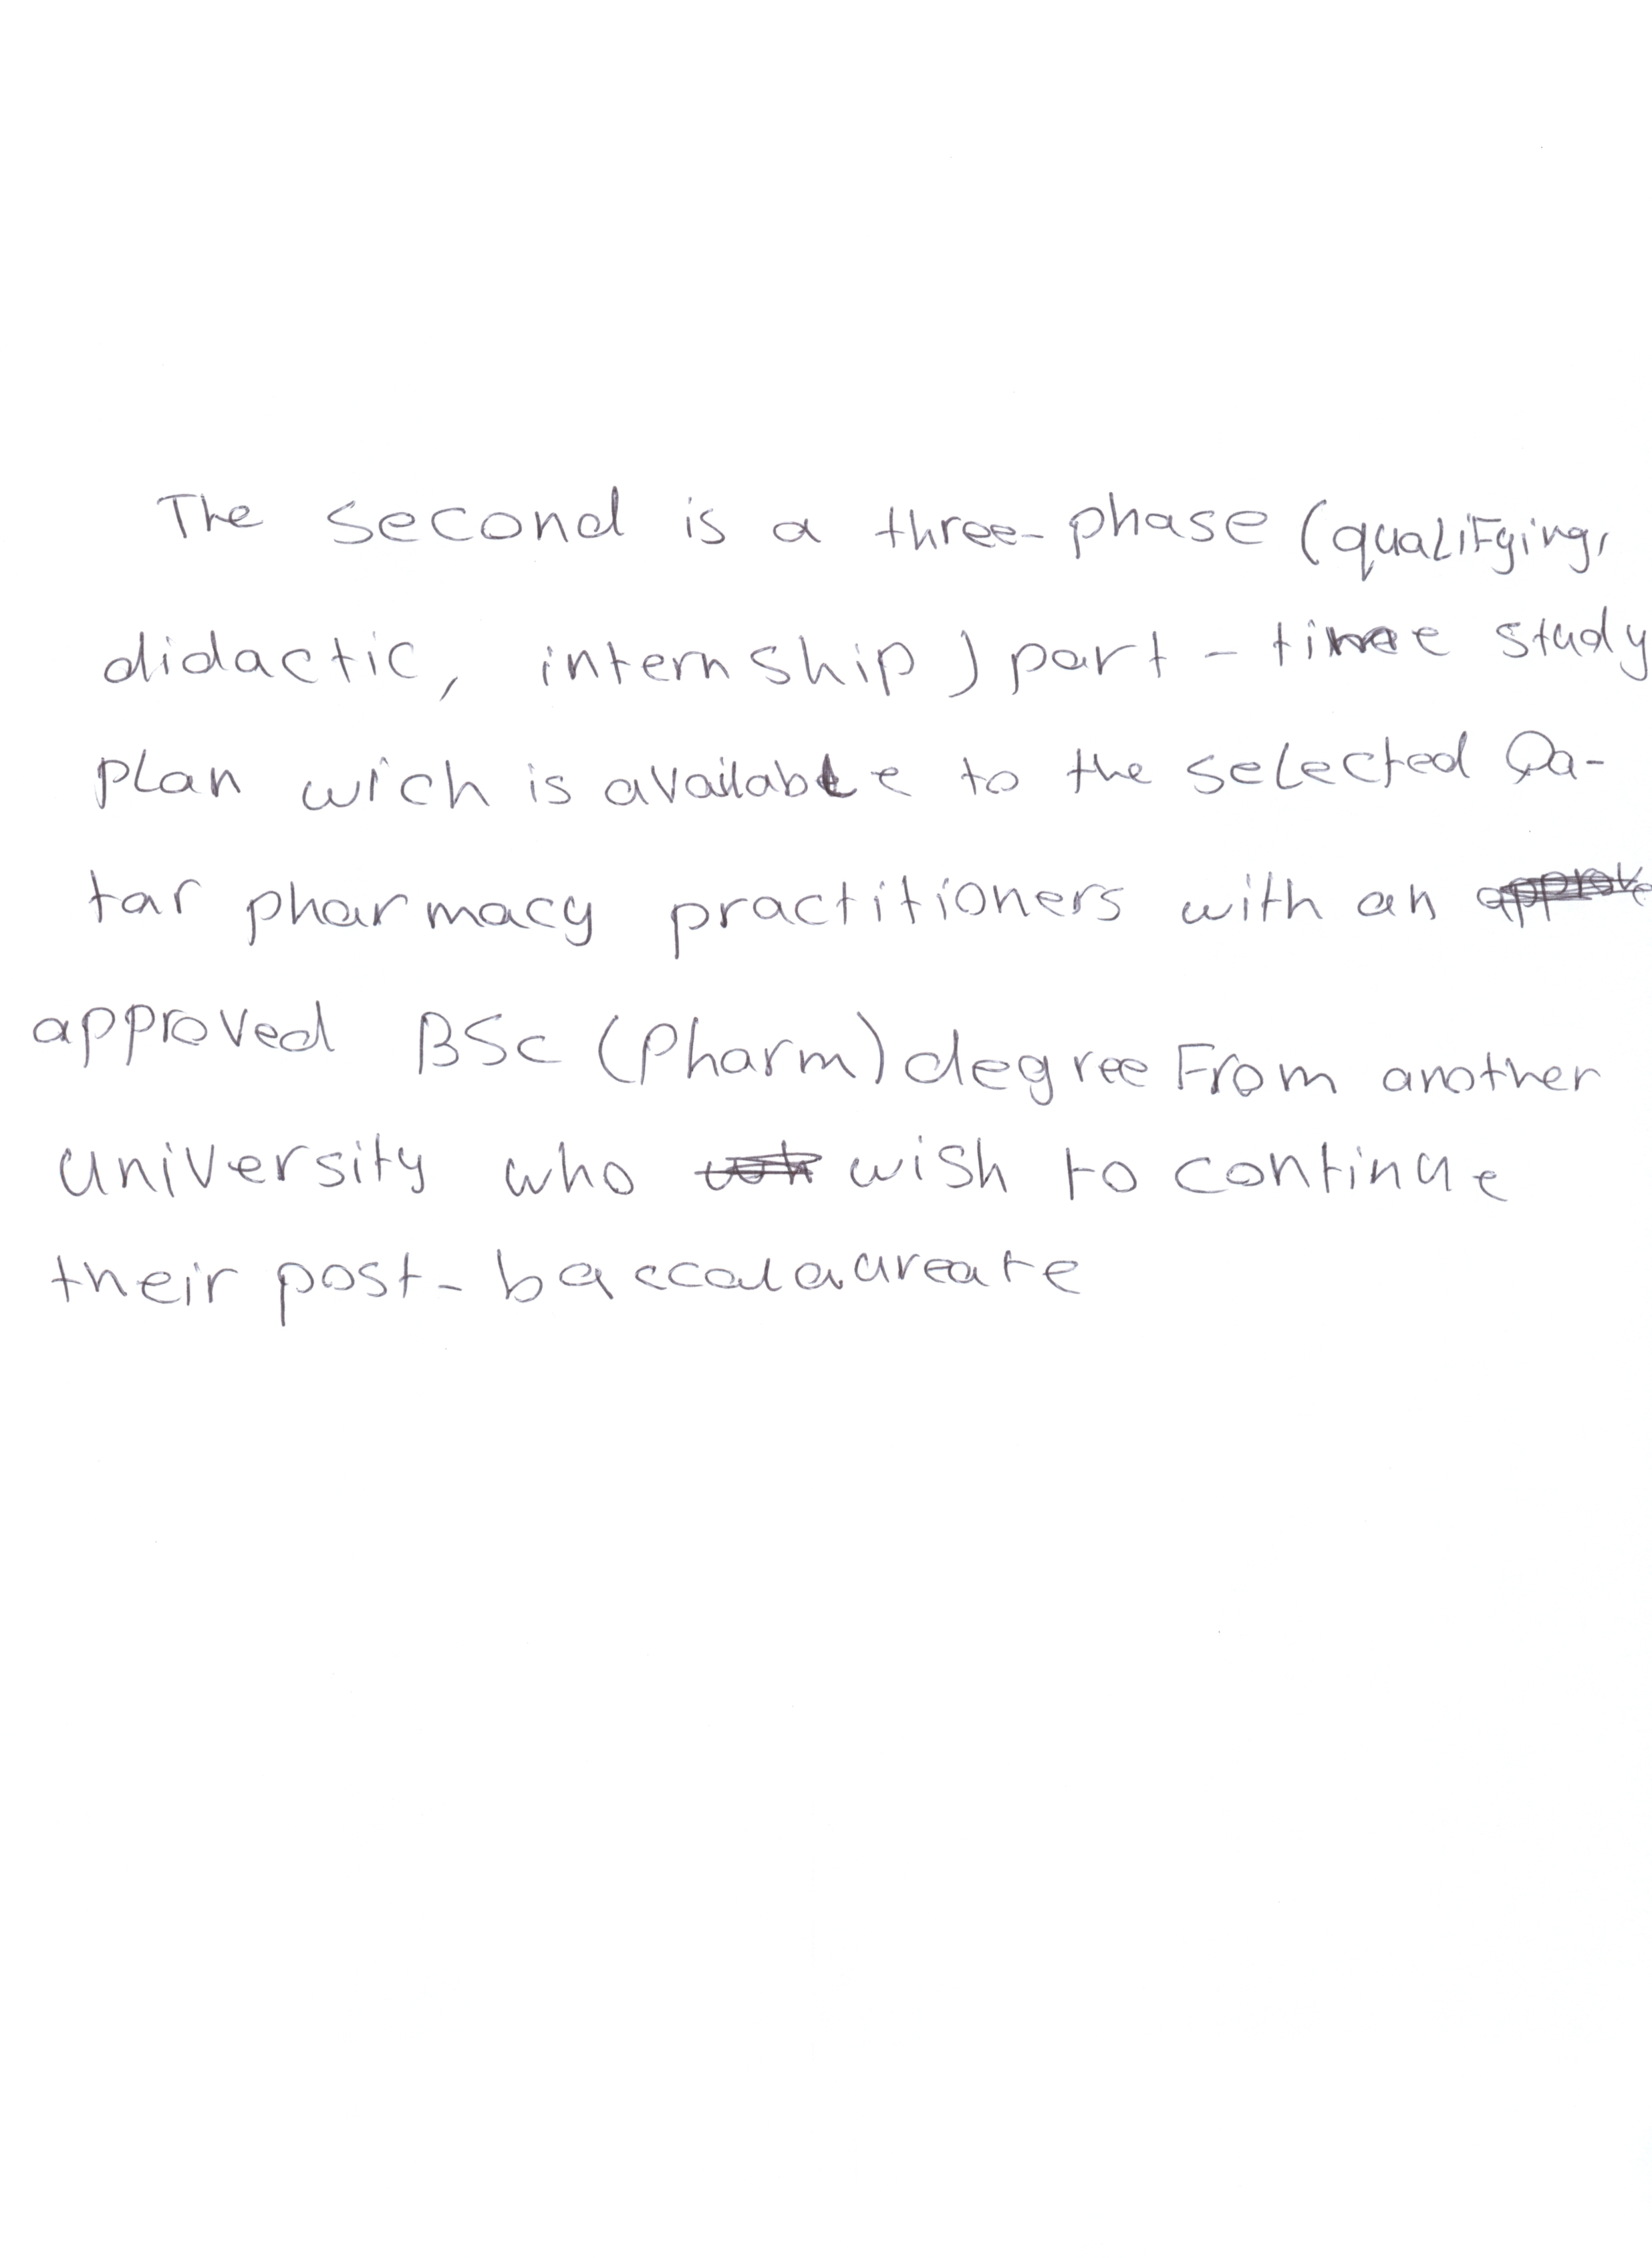 The second is a three-phase (qualifying,
didactic, internship) part-time study
plan wich is available to the selected Qa-
tar pharmacy practitioners with an
approved BSc (Pharm) degree From another
university who wish to continue
their post-baccalaureate